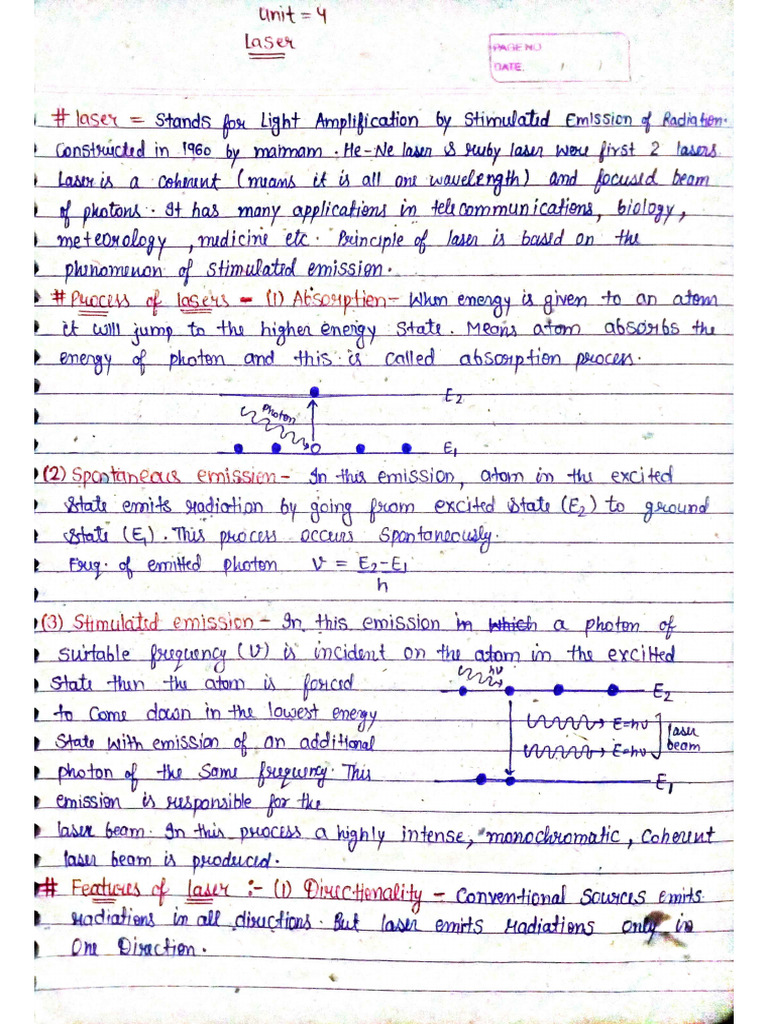 Unit = 4
Laser
PAGE NO
DATE
# laser = Stands for Light Amplification by Stimulated Emission of Radiation.
Constructed in 1960 by maimam. He-Ne laser & ruby laser were first 2 lasers
Laser is a coherent (means it is all one wavelength) and focused beam
of photons. It has many applications in telecommunications, biology,
meteorology, medicine etc. Principle of laser is based on the
phenomenon of stimulated emission.
# Process of lasers - (1) Absorption - When energy is given to an atom
it will jump to the higher energy State. Means atom absorbs the
energy of photon and this is called absorption process.
E2
Photon
E1
(2) Spontaneous emission - In this emission, atom in the excited
State emits radiation by going from excited state (E2) to ground
State (E1). This process occurs spontaneously.
Freq. of emitted photon ν = E2-E1
h
(3) Stimulated emission - In this emission in which a photon of
suirtable frequency (ν) is incident on the atom in the excitted
State then the atom is forced
hν
E2
to come down in the lowest energy
State with emission of an additional
E=hν
laser
beam
photon of the same frequency. This
E=hν
E1
emission is responsible for the
laser beam. In this process a highly intense, monochromatic, coherent
laser beam is produced.
# Features of laser :- (1) Directionality - Conventional sources emits
radiations in all directions. But laser emits radiations only in
One Direction.